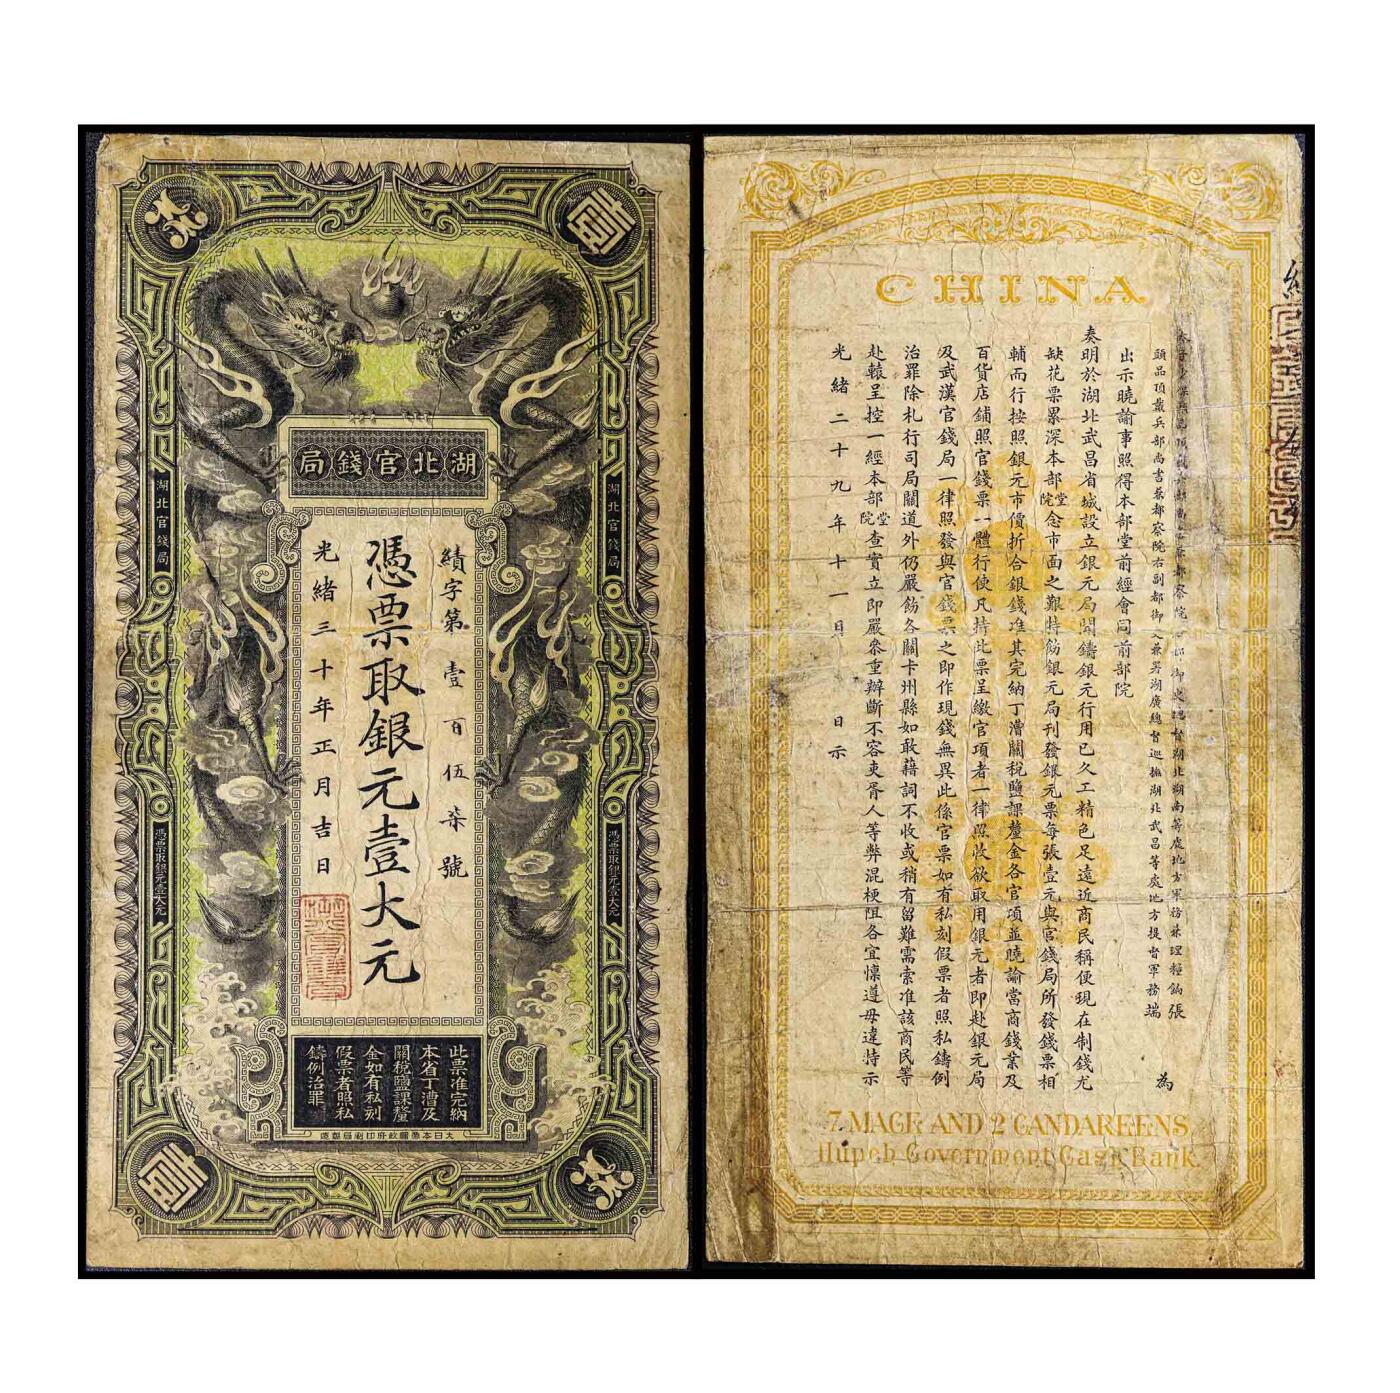 壹
湖北官錢局
湖北官錢局
湖北官錢局
績字第壹百伍柒號
憑票取銀元壹大元
光緒三十年正月吉日
憑票取銀元壹大元
憑票取銀元壹大元
此票准完納
本省丁漕及
關稅鹽課釐
金如有私刻
假票者照私
鑄例治罪
大日本帝國政府印刷局製造
壹
CHINA
頭品頂戴兵部尚書兼都察院右副都御史兼署湖廣總督巡撫湖北武昌等處地方提督軍務端
為
出示曉諭事照得本部堂前經會同前部院
奏明於湖北武昌省城設立銀元局開鑄銀元行用已久工精色足遠近商民稱便現在制錢尤
缺花票累深本部堂院念市面之艱特飭銀元局刊發銀元票每張壹元與官錢局所發錢票相
輔而行按照銀元市價折合銀錢准其完納丁漕關稅鹽課釐金各官項並曉諭當商錢業及
百貨店鋪照官錢票一體行使凡持此票呈繳官項者一律照收欲取用銀元者即赴銀元局
及武漢官錢局一律照發與官錢票之即作現錢無異此係官票如有私刻假票者照私鑄例
治罪除札行司局關道外仍嚴飭各關卡州縣如敢藉詞不收或稍有留難需索准該商民等
赴轅呈控一經本部堂院查實立即嚴叅重辦斷不容吏胥人等弊混梗阻各宜懍遵毋違特示
光緒二十九年十一月 日示
7 MACE AND 2 CANDAREENS
Hupeh Government Cash Bank.